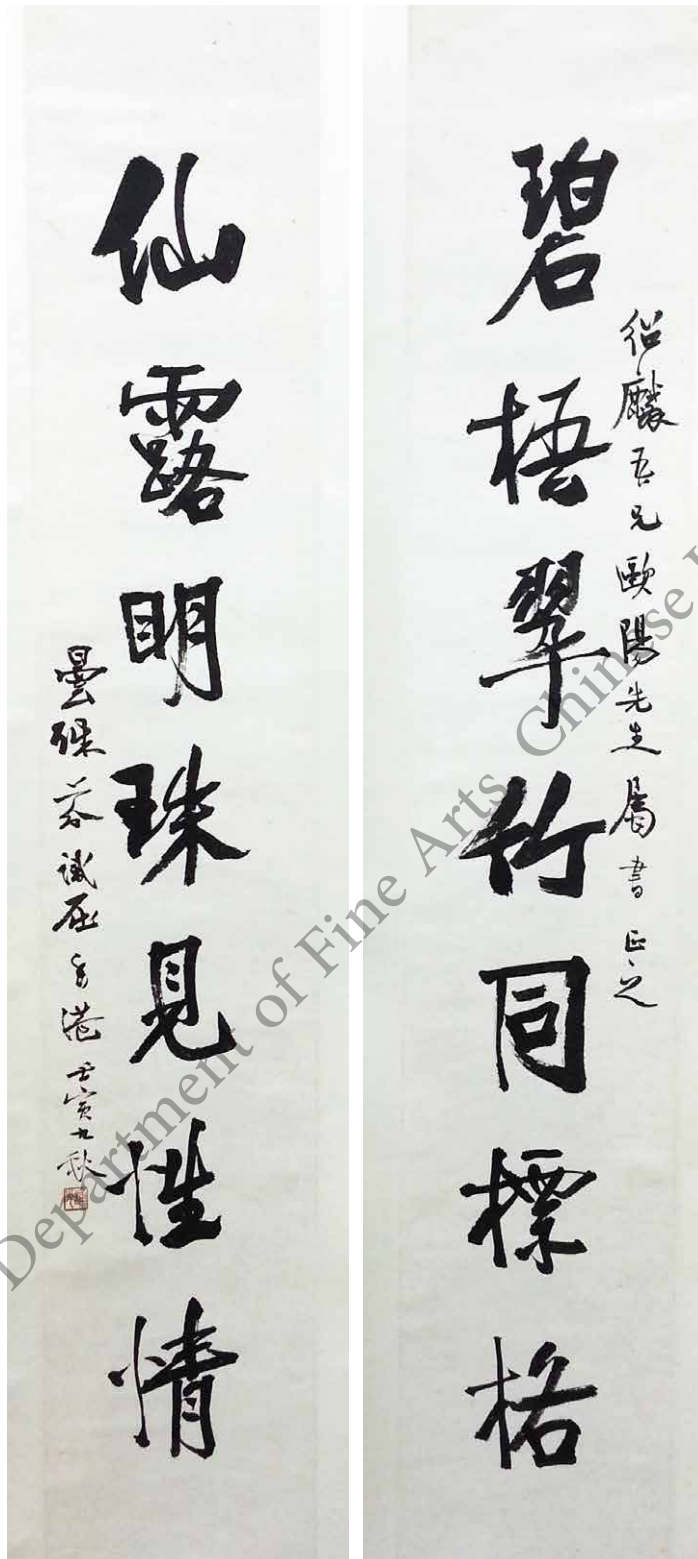 碧梧翠竹同標格
紹麟吾兄歐陽先生屬書 正之
仙露明珠見性情
曇殊 試 香港 壬寅九秋
Department of Fine Arts, Chinese